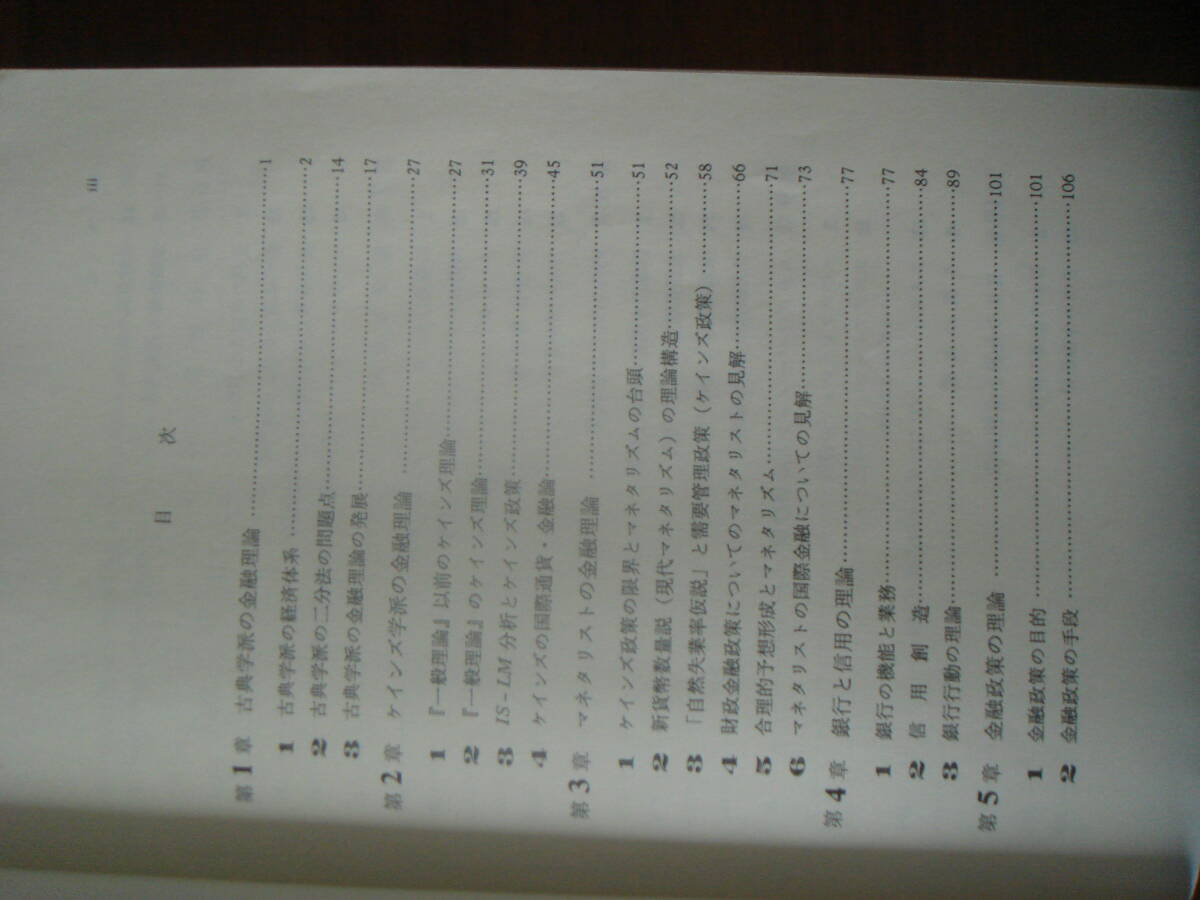 iii
目次
第1章 古典学派の金融理論……………1
1 古典学派の経済体系……………2
2 古典学派の二分法の問題点……………14
3 古典学派の金融理論の発展……………17
第2章 ケインズ学派の金融理論……………27
1 『一般理論』以前のケインズ理論……………27
2 『一般理論』のケインズ理論……………31
3 IS-LM分析とケインズ政策……………39
4 ケインズの国際通貨・金融論……………45
第3章 マネタリストの金融理論……………51
1 ケインズ政策の限界とマネタリズムの台頭……………51
2 新貨幣数量説（現代マネタリズム）の理論構造……………52
3 「自然失業率仮説」と需要管理政策（ケインズ政策）……………58
4 財政金融政策についてのマネタリストの見解……………66
5 合理的予想形成とマネタリズム……………71
6 マネタリストの国際金融についての見解……………73
第4章 銀行と信用の理論……………77
1 銀行の機能と業務……………77
2 信用創造……………84
3 銀行行動の理論……………89
第5章 金融政策の理論……………101
1 金融政策の目的……………101
2 金融政策の手段……………106